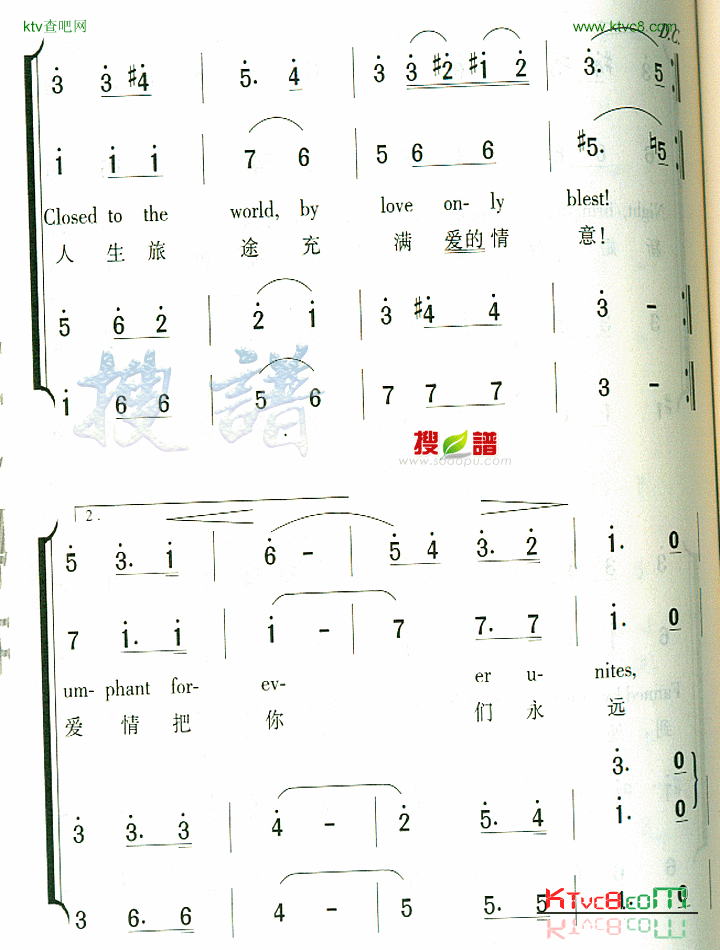 ktv查吧网 www.ktvc8.com
D.C.
3̇ 3̇ #4̇ | 5̇. 4̇ | 3̇ 3̇ #2̇ #1̇ 2̇ | 3̇. 5̇ :|
1̇ 1̇ 1̇ | 7 6 | 5 6 6 | #5. ♮5 :|
Closed to the world, by love on- ly blest!
人 生 旅 途 充 满 爱的 情 意！
5̇ 6̇ 2̇ | 2̇ 1̇ | 3̇ #4̇ 4̇ | 3̇ – :|
1̇ 6 6 | 5 6 | 7 7 7 | 3 – :|
搜譜
搜譜
www.sooopu.com
2.
5̇ 3̇. 1̇ | 6̇ – | 5̇ 4̇ 3̇. 2̇ | 1̇. 0
7 1̇. 1̇ | 1̇ – | 7 7. 7 | 1̇. 0
um- phant for- ev- er u- nites,
爱 情 把 你 们 永 远
3̇. 0
3̇ 3̇. 3̇ | 4̇ – | 2̇ 5̇. 4̇ | 1̇. 0
3 6. 6 | 4 – | 5 5. 5 | 1. 0
KTvc8.com